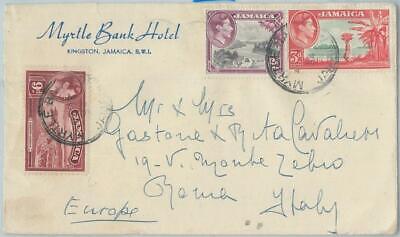 Myrtle Bank Hotel
KINGSTON, JAMAICA, B.W.I.
JAMAICA
3d
MYRTLE
6
MYRTLE B
Mr & Mrs
Gastone & Rita Cavalieri
19 - V. Monte Zebio
Roma
Italy
Europe